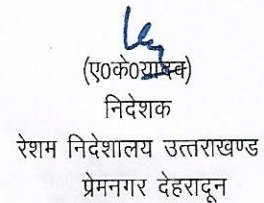 (ए०के०यादव)
निदेशक
रेशम निदेशालय उत्तराखण्ड
प्रेमनगर देहरादून